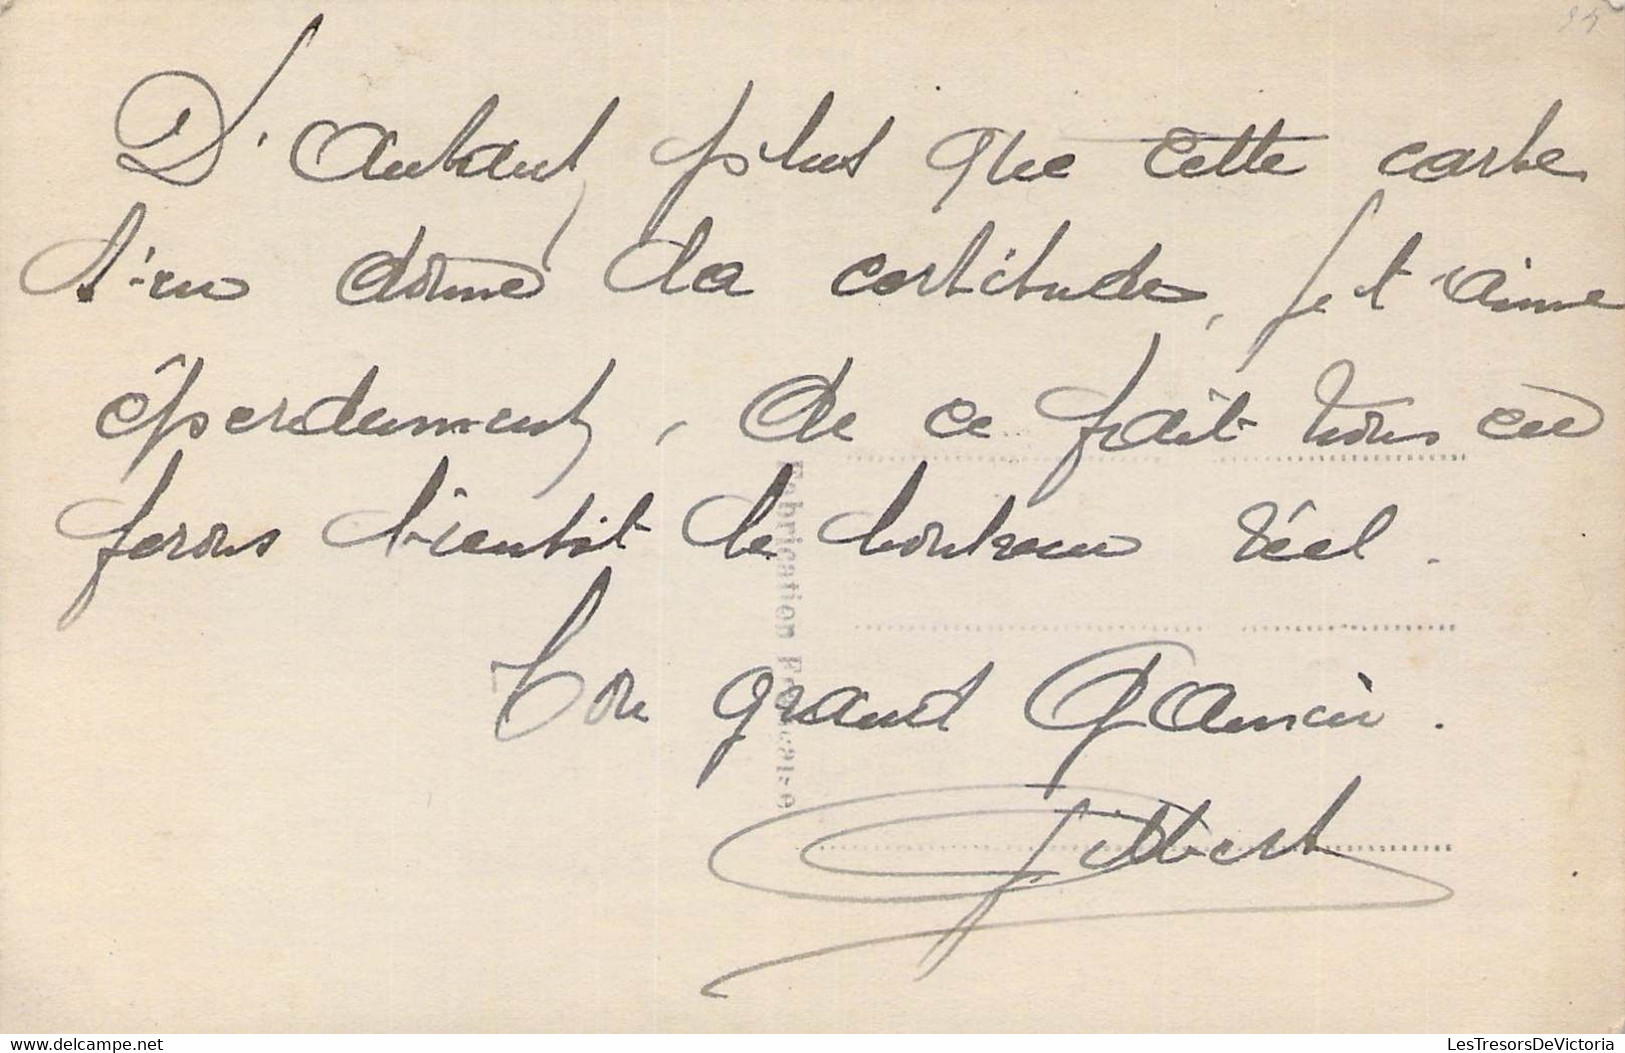 D'autant plus que cette carte
t'en donne la certitude, je t'aime
éperdument, de ce fait nous en
ferons bientôt le bonheur réel.
Ton grand Gamin.
Gilbert
Fabrication Française
LesTresorsDeVictoria
www.delcampe.net